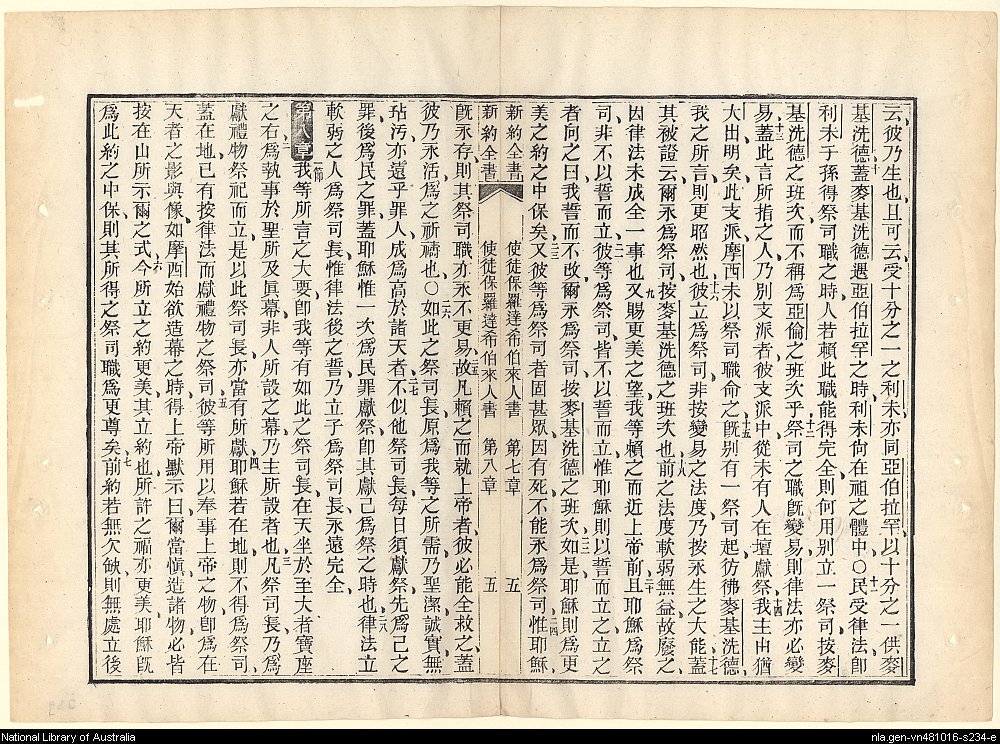 云彼乃生也且可云受十分之一之利未亦同亞伯拉罕以十分之一供麥
基洗德蓋麥基洗德遇亞伯拉罕之時利未尚在祖之體中○民受律法卽
利未子孫得祭司職之時人若賴此職能得完全則何用別立一祭司按麥
基洗德之班次而不稱爲亞倫之班次乎祭司之職旣變易則律法亦必變
易蓋此言所指之人乃別支派者彼支派中從未有人在壇獻祭我主由猶
大出明矣此支派摩西未以祭司職命之旣別有一祭司起彷彿麥基洗德
我之所言則更昭然也彼立爲祭司非按變易之法度乃按永生之大能蓋
其被證云爾永爲祭司按麥基洗德之班次也前之法度軟弱無益故廢之
因律法未成全一事也又賜更美之望我等賴之而近上帝前且耶穌爲祭
司非不以誓而立彼等爲祭司皆不以誓而立惟耶穌則以誓而立之立之
者向之曰我誓而不改爾永爲祭司按麥基洗德之班次如是耶穌則爲更
美之約之中保矣又彼等爲祭司者固甚眾因有死不能永爲祭司惟耶穌
新約全書 使徒保羅達希伯來人書 第七章 五
新約全書 使徒保羅達希伯來人書 第八章 五
旣永存則其祭司職亦永不更易故凡賴之而就上帝者彼必能全救之蓋
彼乃永活爲之祈禱也○如此之祭司長原爲我等之所需乃聖潔誠實無
玷污亦遠乎罪人成爲高於諸天者不似他祭司長每日須獻祭先爲己之
罪後爲民之罪蓋耶穌惟一次爲民罪獻祭卽其獻己爲祭之時也律法立
軟弱之人爲祭司長惟律法後之誓乃立子爲祭司長永遠完全
第八章 一節 我等所言之大要卽我等有如此之祭司長在天坐於至大者寶座
之右爲執事於聖所及眞幕非人所設之幕乃主所設者也凡祭司長乃爲
獻禮物祭祀而立是以此祭司長亦當有所獻耶穌若在地則不得爲祭司
蓋在地已有按律法而獻禮物之祭司彼等所用以奉事上帝之物卽爲在
天者之影與像如摩西始欲造幕之時得上帝默示曰爾當愼造諸物必皆
按在山所示爾之式今所立之約更美其立約也所許之福亦更美耶穌旣
爲此約之中保則其所得之祭司職爲更尊矣前約若無欠缺則無處立後
National Library of Australia
nla.gen-vn481016-s234-e